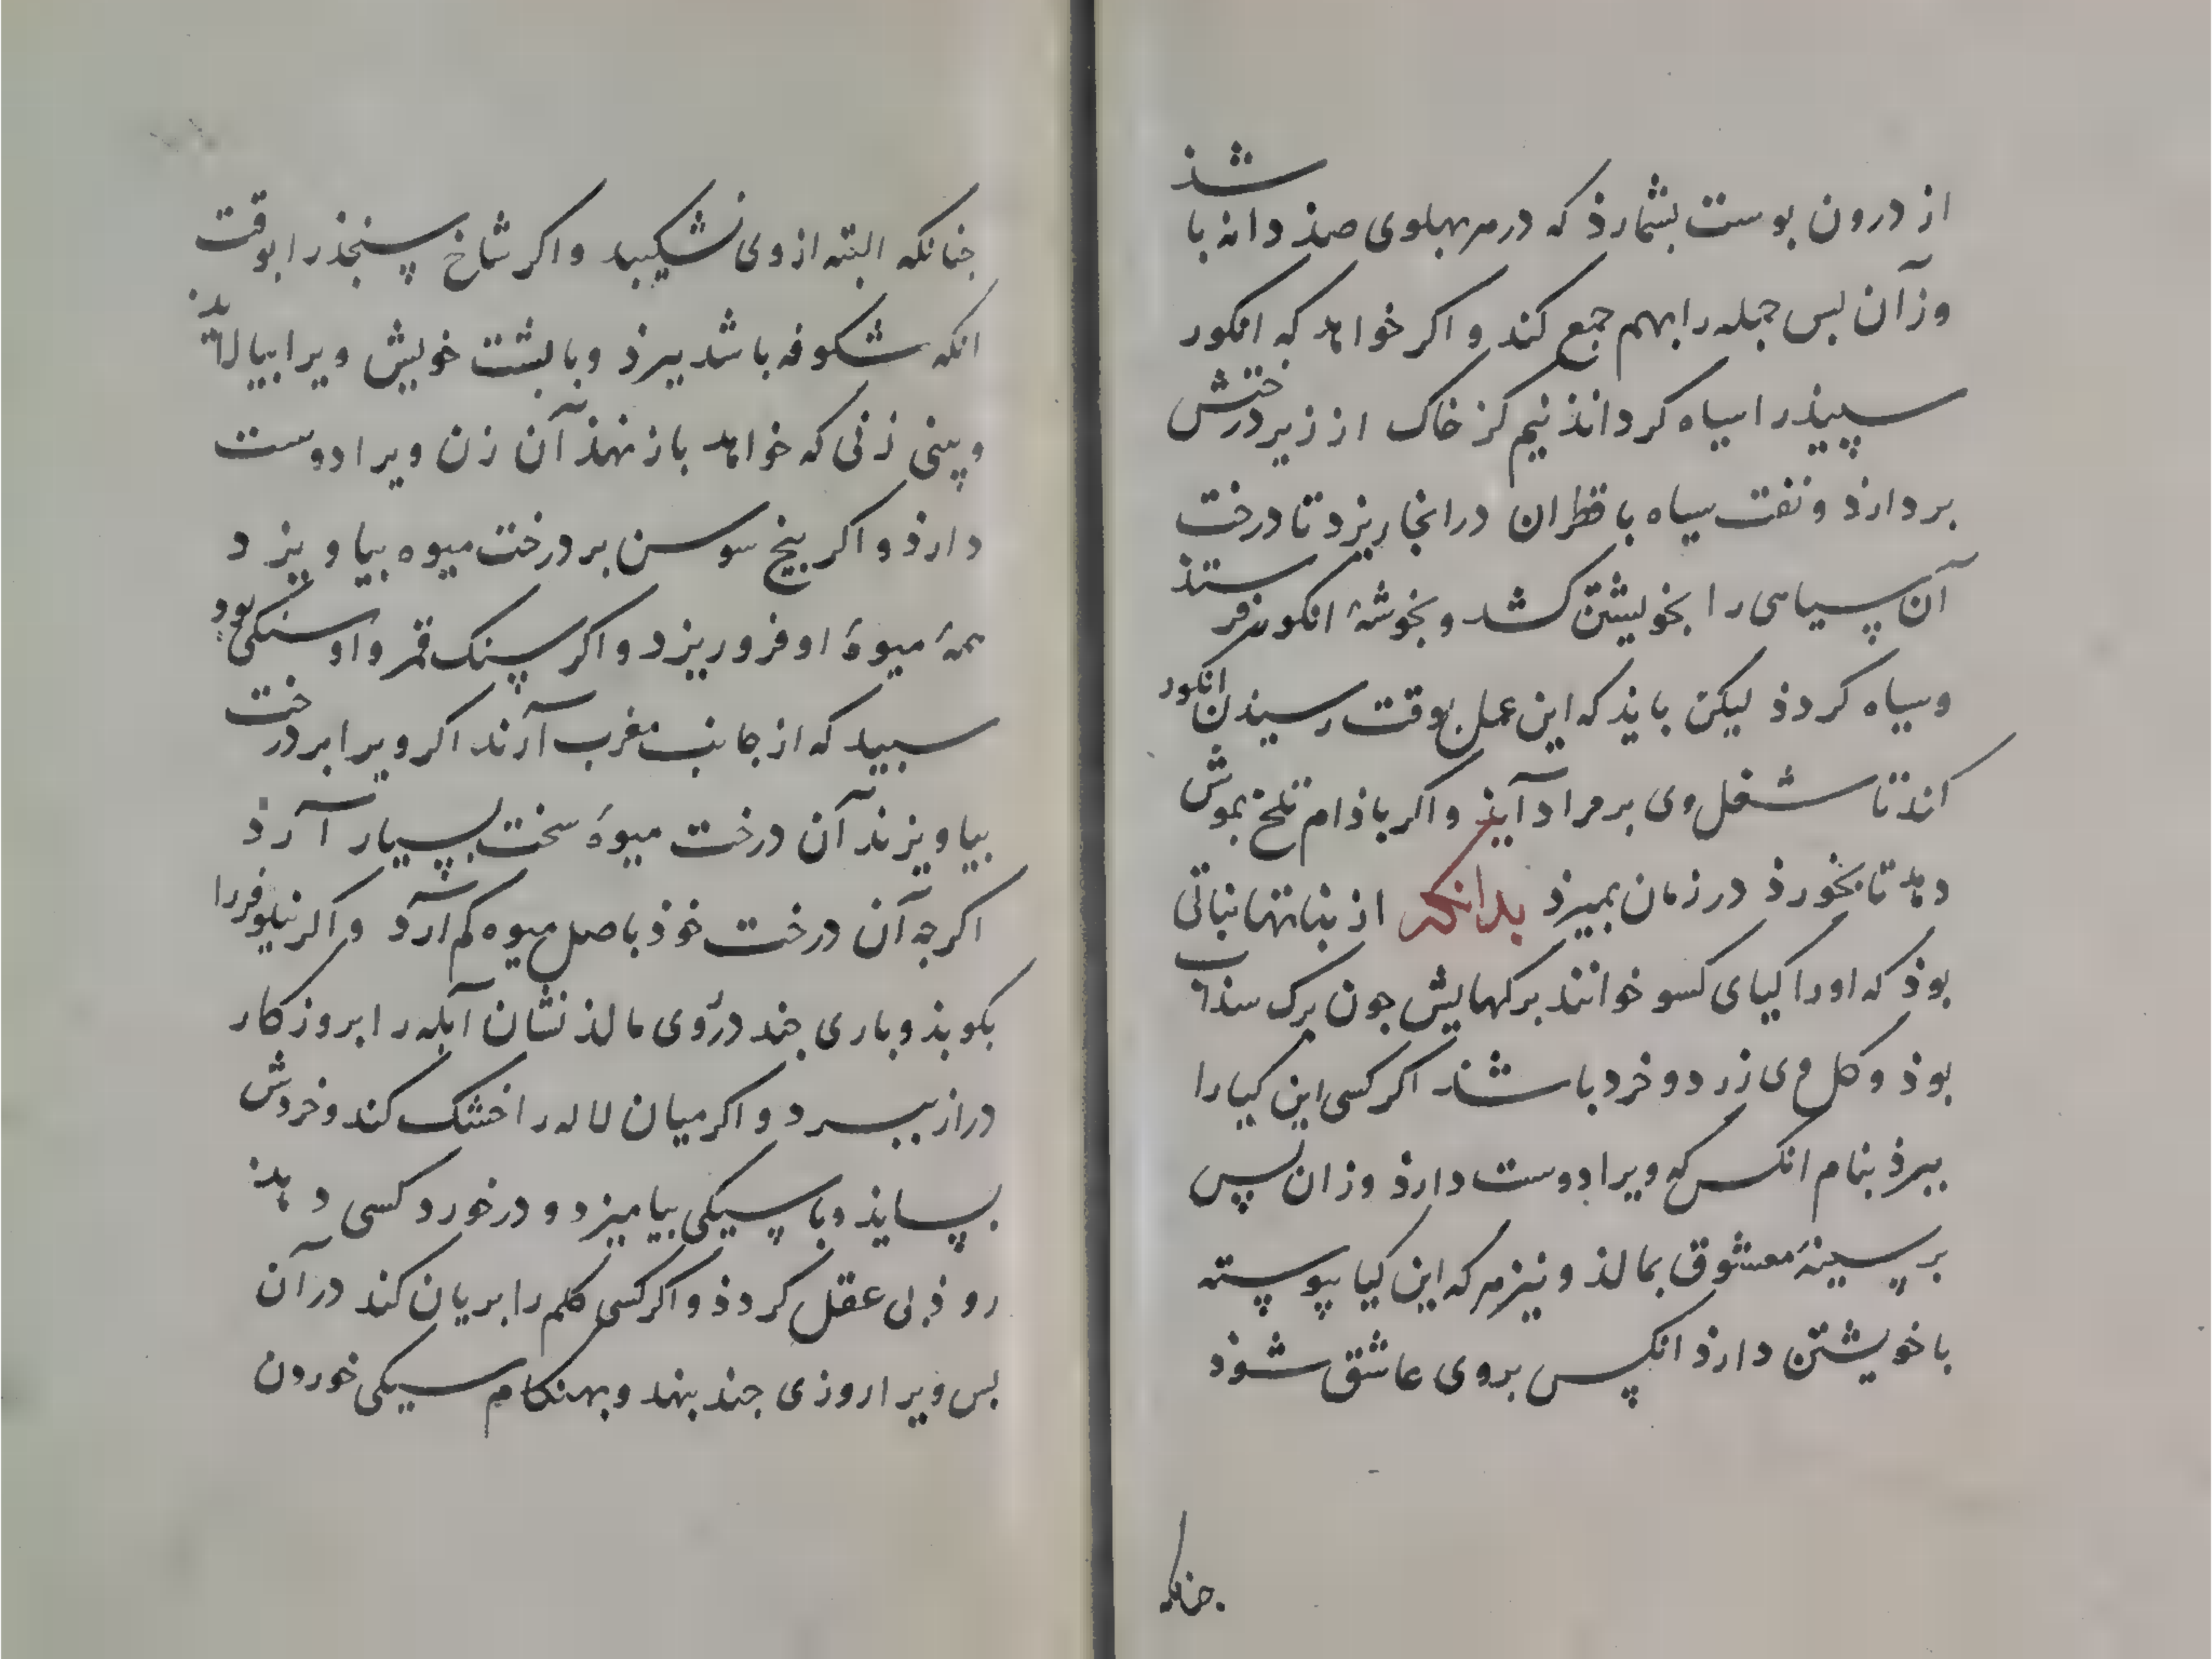 از درون بوست بشمارذ که در هر بهلوی صذ دانه باشذ
وزآن بس جمله را بهم جمع کند و اکر خواهد که انکور
سپیذ را سیاه کرداند نیم کز خاک از زیر درختش
بردارذ و نفت سیاه با قطران در انجا ریزد تا درخت
آن سیاهی را بخویشتن کشد و بخوشهٔ انکور فرستذ
و سیاه کردذ لیکن بایذ که این عمل بوقت رسیذن انکور
کند تا شغل وی بر مراد آیذ و اکر باذام تلخ بموش
دهد تا بخورذ در زمان بمیرذ بدانکه از بناتها نباتی
بوذ که او را کیای کسو خوانند برکهایش جون برک سذاب
بوذ و کل وی زرد و خرد باشد اکر کسی این کیا را
ببرذ بنام انکس که ویرا دوست دارذ وزان پس
بر سینهٔ معشوق بمالذ و نیز هر که این کیا پیوسته
با خویشتن دارذ انکس بروی عاشق شوذ
جنانکه
جنانکه البته از وی نشکیبد و اکر شاخ سنجذ را بوقت
انکه شکوفه باشد ببرذ و با بشت خویش ویرا بیالاید
و بینی زنی که خواهد باز نهذ آن زن ویرا دوست
دارذ و اکر بیخ سوسن بر درخت میوه بیاویزد
همهٔ میوهٔ او فرو ریزد و اکر سنک قمر و او سنکی بود
سبید که از جانب مغرب آرند اکر ویرا بر درخت
بیاویزند آن درخت میوهٔ سخت بسیار آرذ
اکرجه آن درخت خوذ باصل میوه کم آرد و اکر نیلوفر را
بکوبذ و باری جند در روی مالذ نشان آبله را بروزکار
دراز ببرد و اکر میان لاله را خشک کند و خردش
بسایذ و با سیکی بیامیزد و در خورد کسی دهد
روذ بی عقل کردذ و اکر کسی کلم را بریان کند در آن
بس ویرا روزی جند بنهد و بهنکام سیکی خوردن